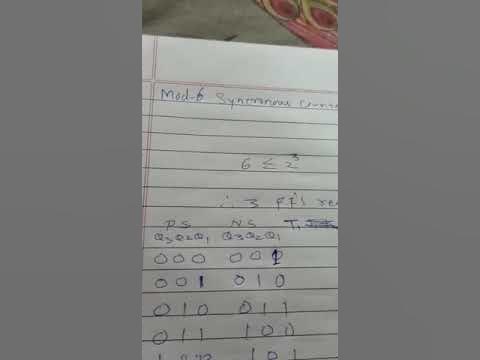 Mod-6 Syncronous
6 ≤ 2³
∴ 3 FFs
PS NS T₁
Q₃Q₂Q₁ Q₃Q₂Q₁
0 0 0 0 0 1
0 0 1 0 1 0
0 1 0 0 1 1
0 1 1 1 0 0
1 0 1